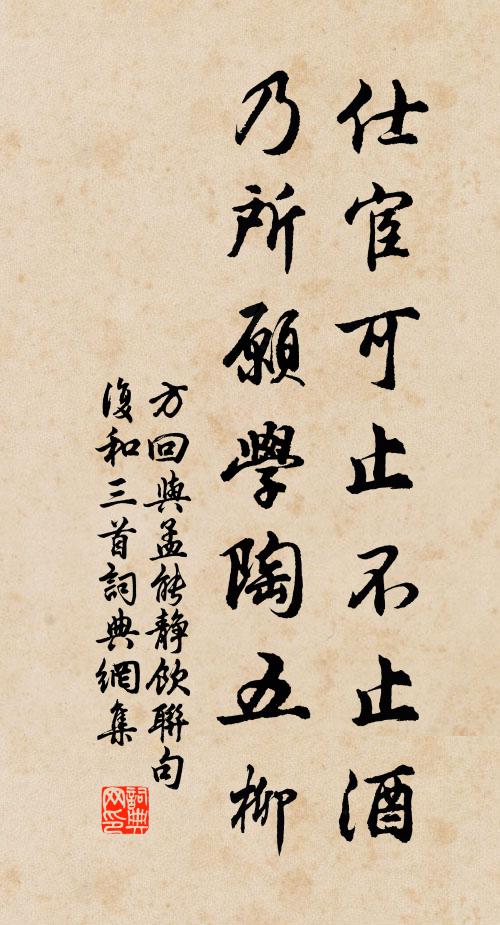 仕宦可止不止酒
乃所願學陶五柳
方回與孟能靜飲聯句
復和三首詞典網集
詞典
网印